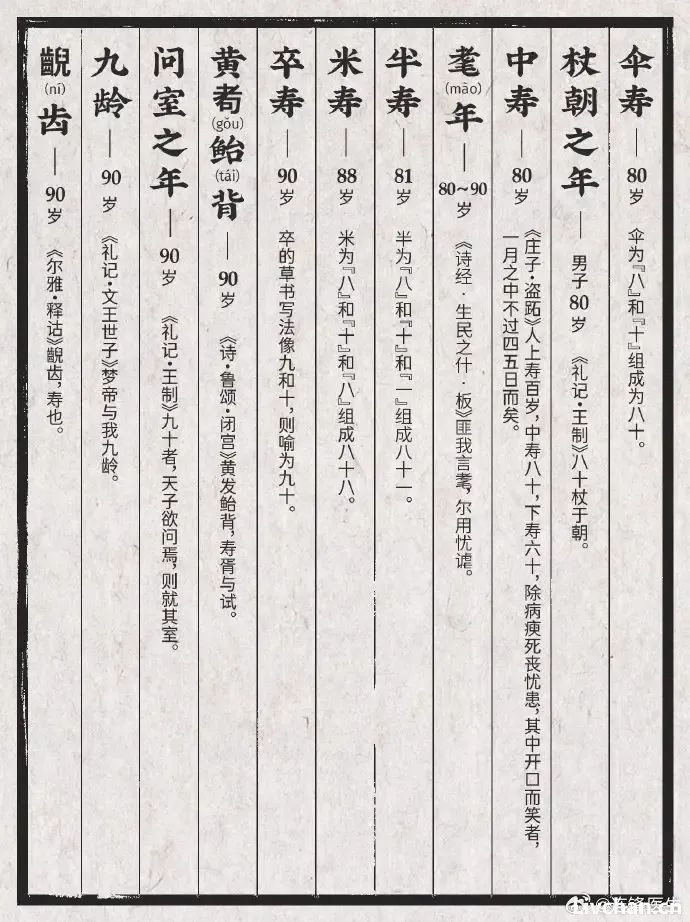 伞寿——80岁 伞为『八』和『十』组成为八十。
杖朝之年——男子80岁 《礼记·王制》八十杖于朝。
中寿——80岁 《庄子·盗跖》人上寿百岁，中寿八十，下寿六十，除病瘐死丧忧患，其中开口而笑者，
一月之中不过四五日而矣。
耄(mào)年——80~90岁 《诗经·生民之什·板》匪我言耄，尔用忧谑。
半寿——81岁 半为『八』和『十』和『一』组成八十一。
米寿——88岁 米为『八』和『十』和『八』组成八十八。
卒寿——90岁 卒的草书写法像九和十，则喻为九十。
黄耇(gǒu)鲐(tái)背——90岁 《诗·鲁颂·闭宫》黄发鲐背，寿胥与试。
问室之年——90岁 《礼记·王制》九十者，天子欲问焉，则就其室。
九龄——90岁 《礼记·文王世子》梦帝与我九龄。
齯(ní)齿——90岁 《尔雅·释诂》齯齿，寿也。